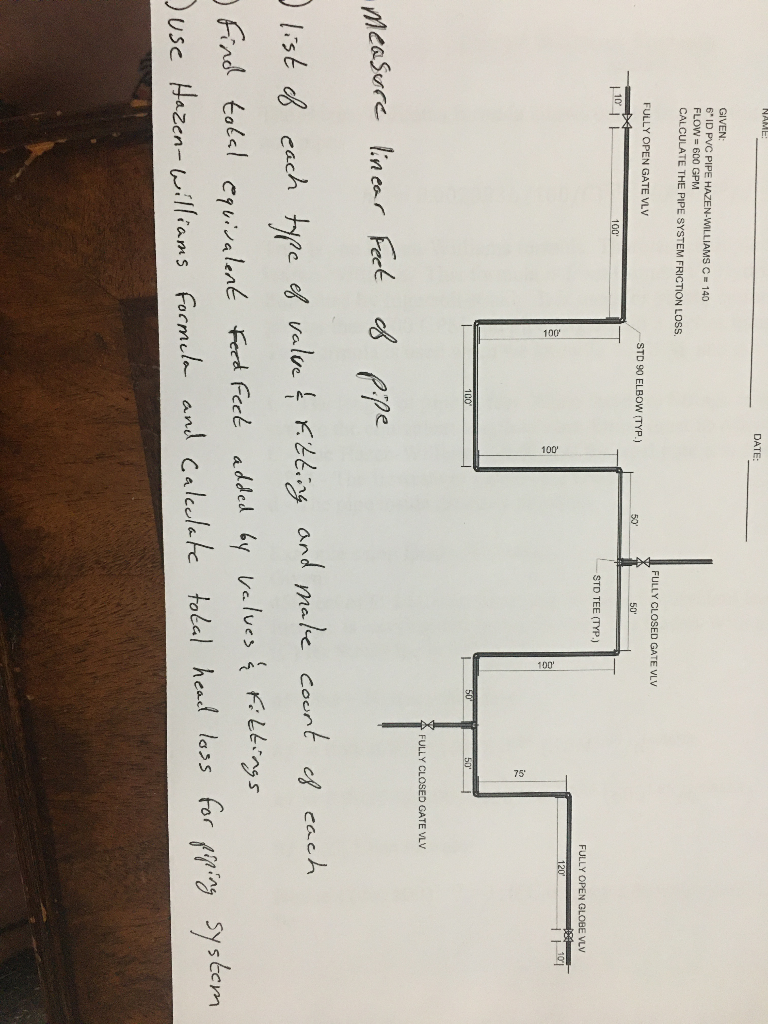 NAME:
DATE:
GIVEN:
6" ID PVC PIPE HAZEN-WILLIAMS C = 140
FLOW = 600 GPM
CALCULATE THE PIPE SYSTEM FRICTION LOSS.
FULLY OPEN GATE VLV
STD 90 ELBOW (TYP.)
FULLY CLOSED GATE VLV
10'
100'
50'
50'
STD TEE (TYP.)
100'
100'
100'
FULLY OPEN GLOBE VLV
75'
120'
10'
100'
50'
50'
FULLY CLOSED GATE VLV
) Measure linear Feet of pipe
) list of each type of valve & Fitting and make count of each
) Find total equivalent Feed Feet added by valves & Fittings
) use Hazen-Williams Formula and Calculate total head loss for piping system